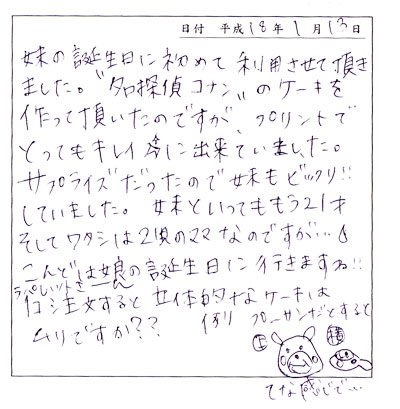 日付 平成18年1月13日
妹の誕生日に初めて利用させて頂き
ました。"名探偵コナン"のケーキを
作って頂いたのですが、プリントで
とってもキレイに出来ていました。
サプライズだったので妹もビックリ!!
していました。妹といってももう21才
そしてワタシは2児のママなのですが…
こんどは娘の誕生日に行きますね!!
注文すると立体的なケーキは
ムリですか?? 例 プーサンだとすると
上 横
てな感じで…